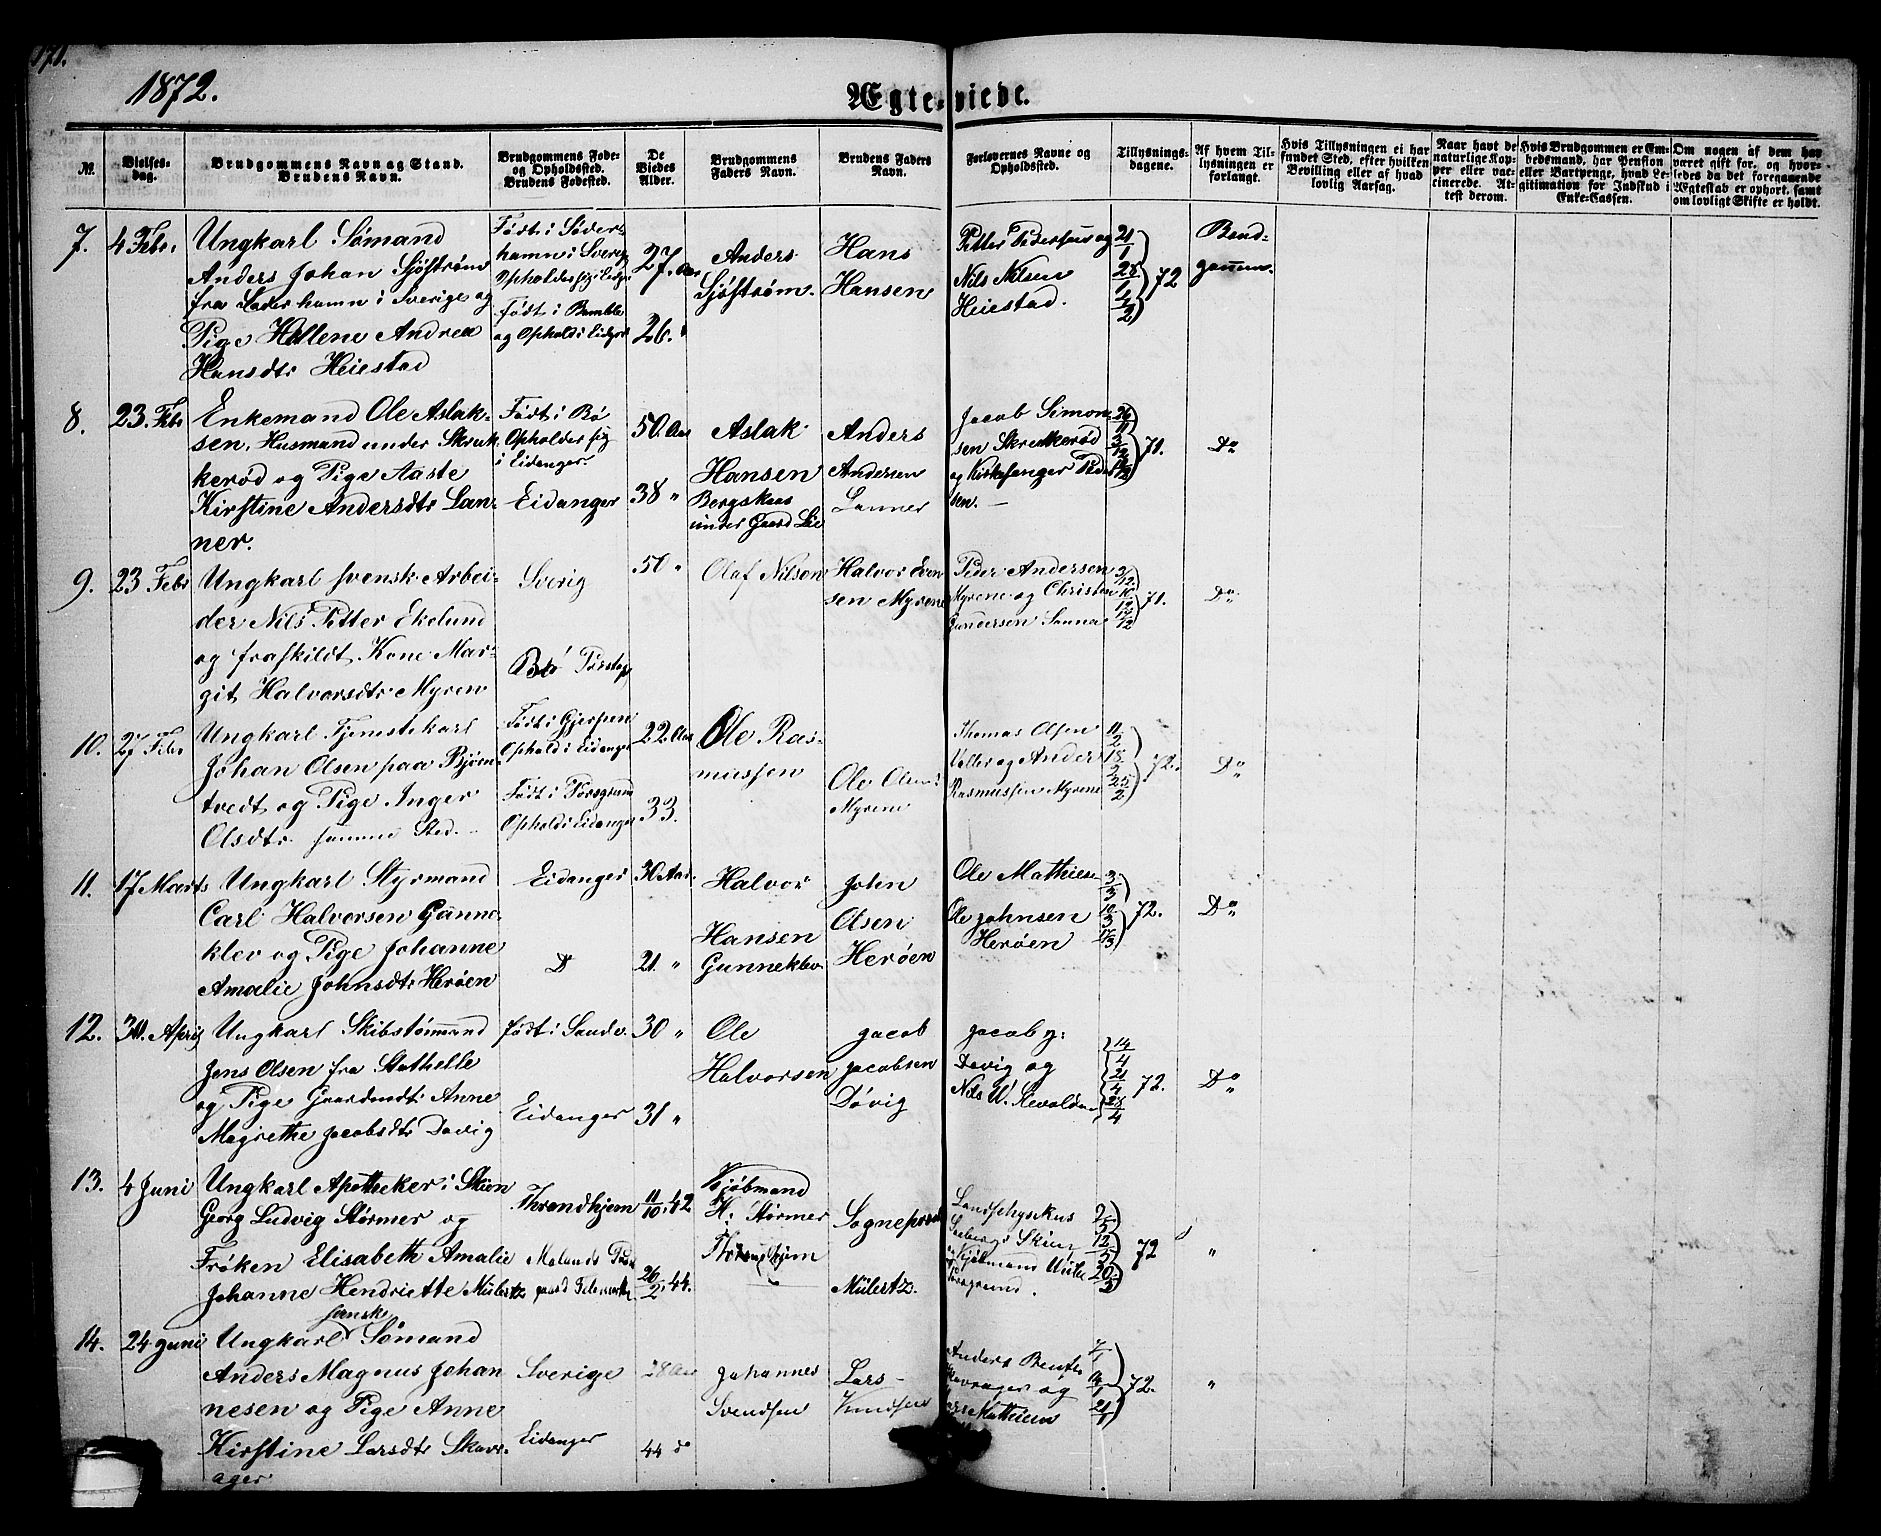 171.
1872.
Ægteviede.
No.
Vielses-
dag.
Brudgommens Navn og Stand.
Brudens Navn.
Brudgommens Føde-
og Opholdssted.
Brudens Fødested.
De
Viedes
Alder.
Brudgommens
Faders Navn.
Brudens Faders
Navn.
Forlovernes Navne og
Opholdssted.
Tillysnings-
dagene.
Af hvem Til-
lysningen er
forlangt.
Hvis Tillysningen ei har
fundet Sted, efter hvilken
Bevilling eller af hvad
lovlig Aarsag.
Naar havt de
naturlige Kop-
per eller vac-
cinerede. At-
test derom.
Hvis Brudgommen er Em-
bedsmand, har Pension
eller Vartpenge, hvad Le-
gitimation for Indskud i
Enke-Cassen.
Om nogen af dem har
været gift før, og hvor-
ledes da det foregaaende
Ægteskab er ophørt, samt
om lovligt Skifte er holdt.
7.
4 Febr.
Ungkarl Sømand
Anders Johan Sjöstrøm
fra Søderhamn i Sverige og
Pige Hellene Andrea
Hansdtr Heiestad
Født i Søder-
hamn i Sverig
Opholder sig i Eidger
Født i Bamble
og Ophold i Eidger
27. Aar
26. "
Anders
Sjöstrøm.
Hans
Hansen
Petter Pedersen og
Nils Nilsen
Heiestad.
21/1
28/1
4/2
72
Brud-
gommen.
8.
23. Febr
Enkemand Ole Aslak-
sen, Husmand under Skruk-
kerød og Pige Aaste
Kirstine Andersdtr Lan-
ner.
Født i Bø
Opholder sig
i Eidanger.
Eidanger
50. Aar
38 "
Aslak
Hansen
Bergskaas
under Gaard Lie
Anders
Andersen
Lanner
Jacob Simon-
sen Skrukkerød
og Kirkesanger Peder
sen. —
71.
Do
9.
23 Febr
Ungkarl svensk Arbei-
der Nils Petter Ekelund
og fraskildt Kone Mar-
git Halvorsdtr Myren
Sverig
Bø
50 "
Olaf Nilsen
Halvor Even
sen Myrene
Peder Andersen
Myrene og Christen
Gundersen Sanna
3/12
10/12
17/12
71.
Do
10.
27 Febr
Ungkarl Tjenestekarl
Johan Olsen paa Bjørn-
tvedt og Pige Inger
Olsdtr. samme Sted. –
Født i Gjerpen
Ophold i Eidanger
Født i Porsgrund
Ophold i Eidanger
22 Aar
33.
Ole Ras-
mussen
Ole Olsen
Myrene
Thomas Olsen
Valler og Anders
Rasmussen Myrene
11/2
18/2
25/2
72.
Do
11.
17 Marts
Ungkarl Styrmand
Carl Halvorsen Gunne-
klev og Pige Johanne
Amalie Johnsdtr Herøen
Eidanger
D
30 Aar.
21. "
Halvor
Hansen
Gunneklev
John
Olsen
Herøen
Ole Mathiese-
Ole Johnsen
Herøen
3/3
10/3
17/3
72.
Do
12.
30. April
Ungkarl Skibstømmand
Jens Olsen fra Stathelle
og Pige Gaardmdtr Anne
Magrethe Jacobsdtr Døvig
Født i Sande.
Eidanger
30 "
31 "
Ole
Halvorsen
Jacob
Jacobsen
Døvig
Jacob J:
Døvig og
Nils W.
14/4
21/4
28/4
72.
Do
13.
4 Juni
Ungkarl Apotheker i Skien
Georg Ludvig Størmer og
Frøken Elisabeth Amalie
Johanne Hendriette Mülertz
Throndhjem
11/10 .42
26/2 .44.
Kjøbmand
H. Størmer
Throndhjem
Sognepræst
Mülertz.
Landphysikus
Skien
og Kjøbmand
Porsgrund.
5/5
12/5
20/5
72
"
14.
24 Juni
svensk
Ungkarl Sømand
Anders Magnus Johan
nesen og Pige Anne
Kirstine Larsdtr Skavr-
ager.
Sverige
Eidanger
28 Aar
44 do
Johannes
Svendsen
Lars
Knudsen
Anders Bentse
Skavrager og
Mathisen
7/1
14/1
21/1
72.
"